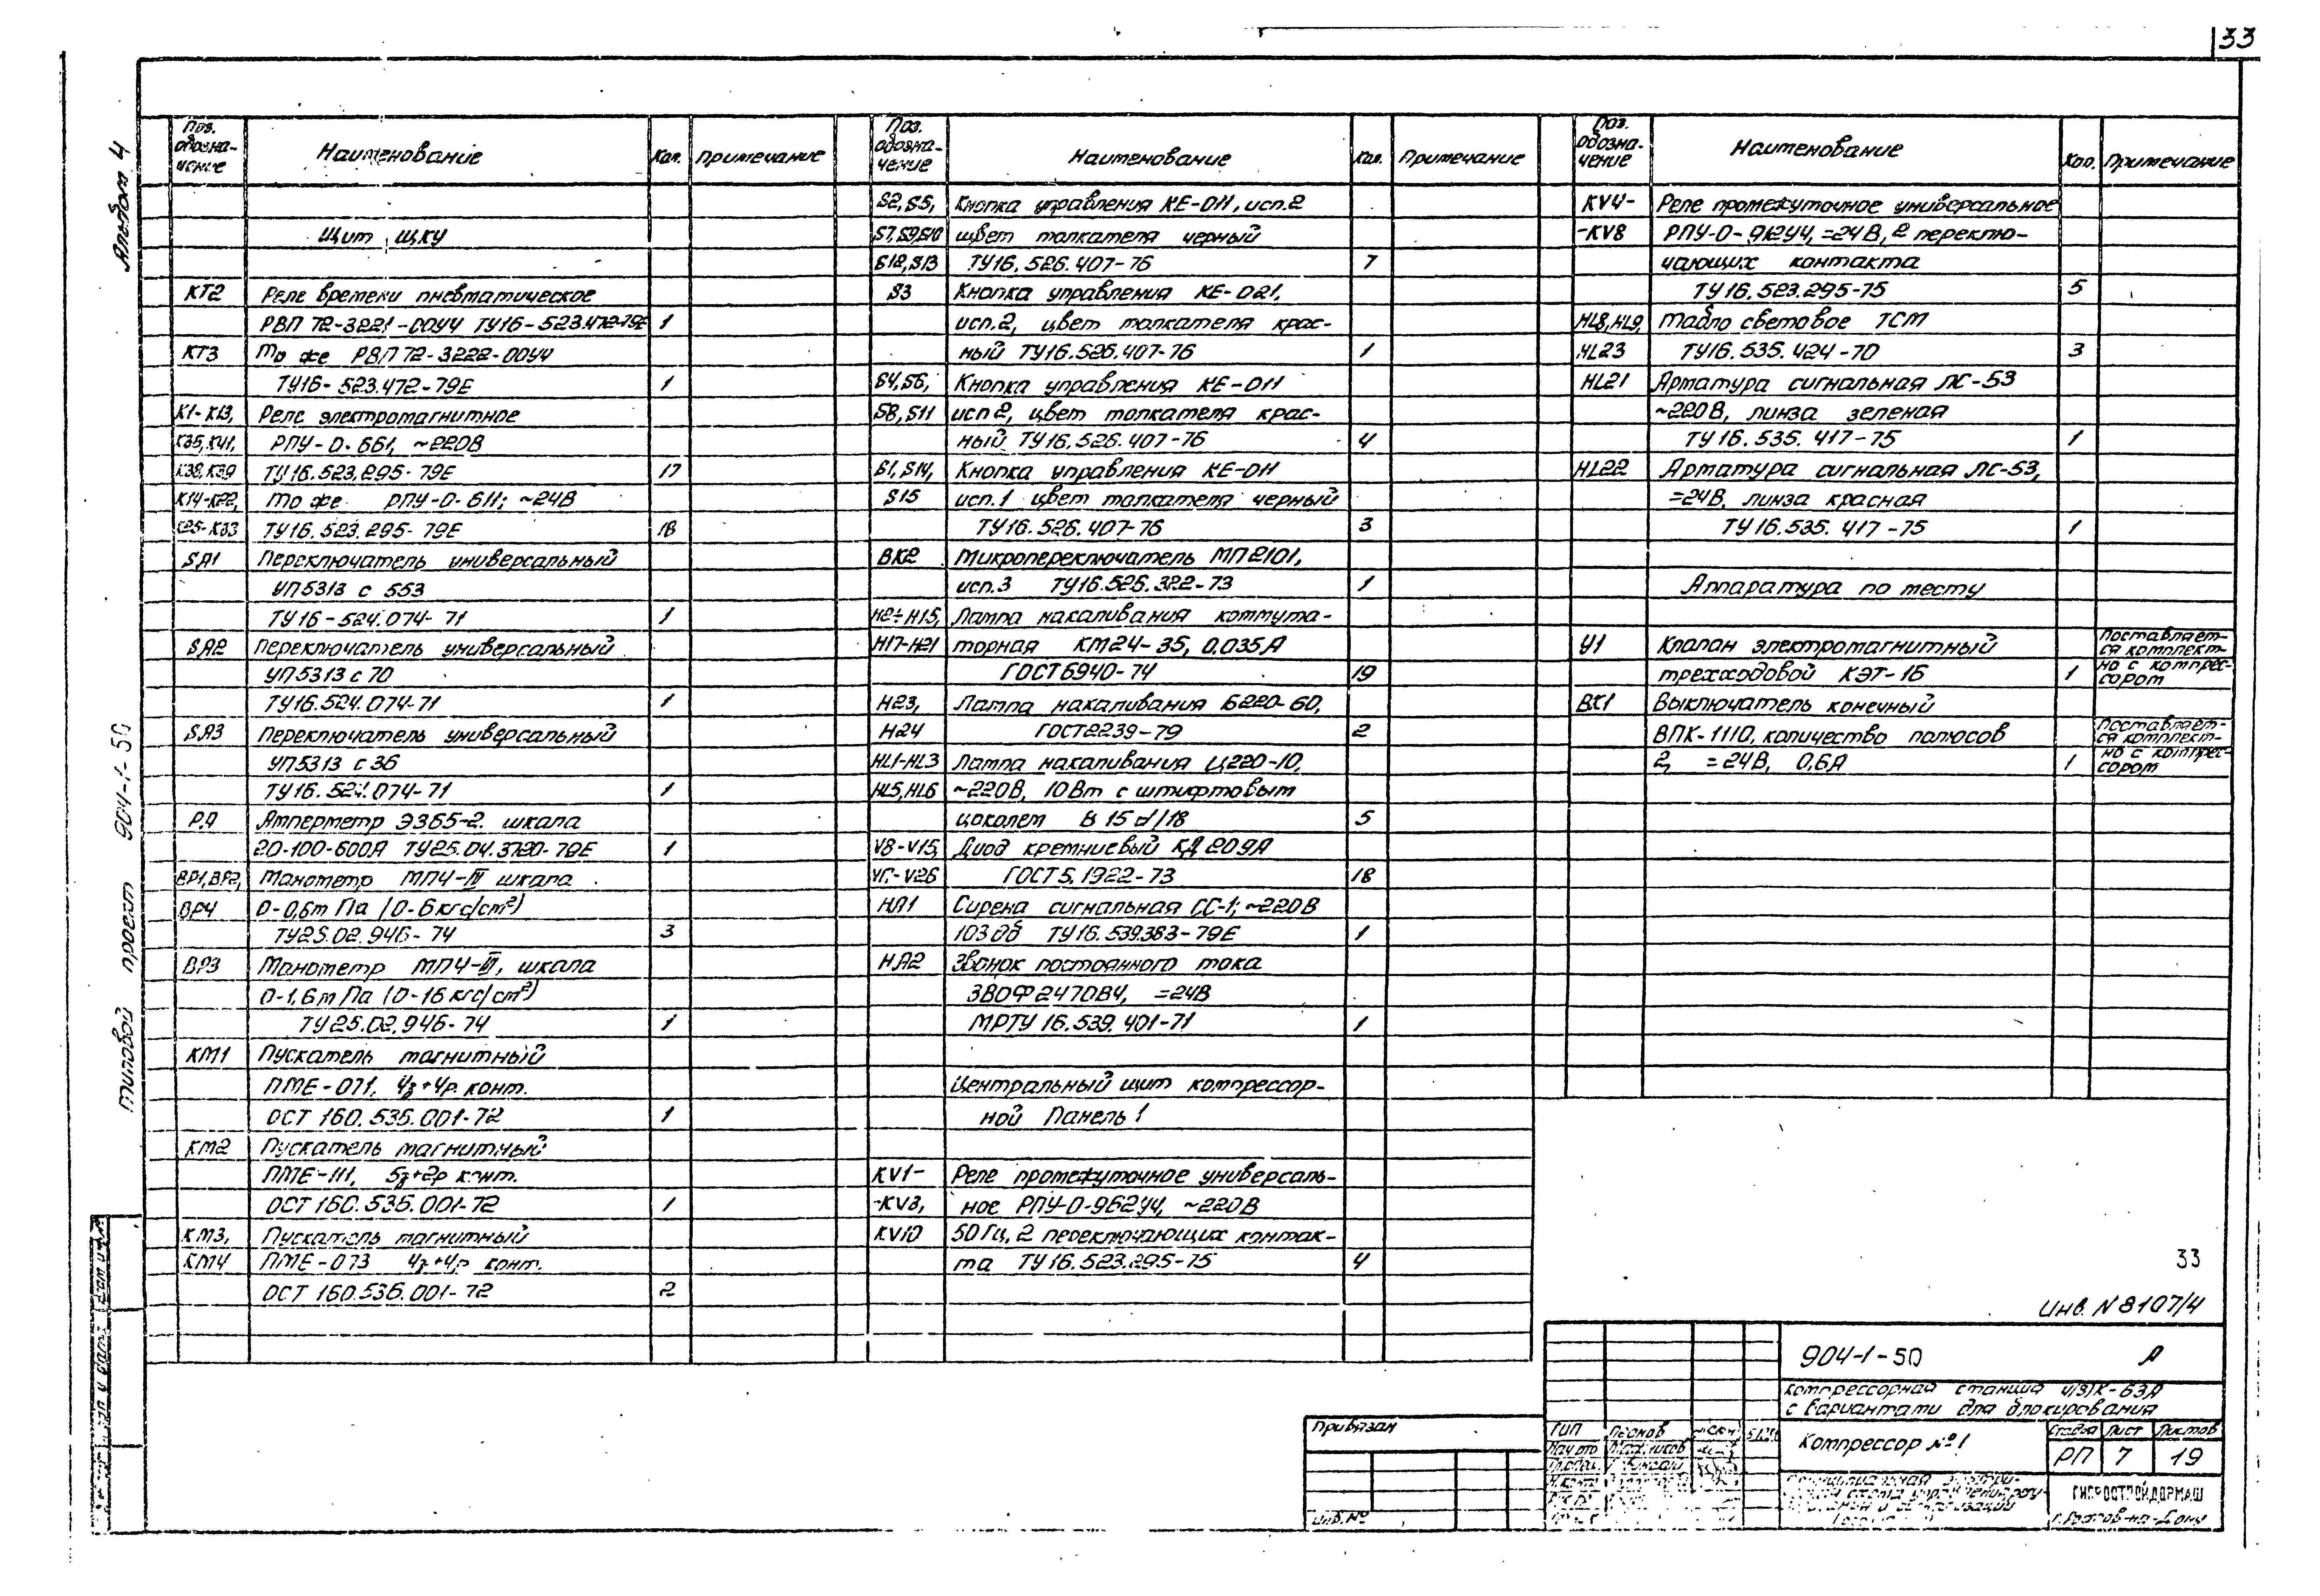 33
Альбом 4
Типовой проект 904-1-50
Поз. обозначение Наименование Кол. Примечание
Щит ЩКУ
КТ2 Реле времени пневматическое
РВП 72-3221-00У4 ТУ16-523.472-79Е 1
КТ3 То же РВП 72-3222-00У4
ТУ16-523.472-79Е 1
К1-К13, Реле электромагнитное
К35, К41, РПУ-0-661, ~220В
К38, К39 ТУ16.523.295-79Е 17
К14-К22, То же РПУ-0-611; ~24В
К25-К33 ТУ16.523.295-79Е 18
SA1 Переключатель универсальный
УП5313 с 553
ТУ16-524.074-71 1
SA2 Переключатель универсальный
УП5313 с 70
ТУ16.524.074-71 1
SA3 Переключатель универсальный
УП5313 с 36
ТУ16.524.074-71 1
РА Амперметр Э365-2. шкала
20-100-600А ТУ25.04.3720-79Е 1
ВР1, ВР2, Манометр МП4-III шкала
ВР4 0-0,6мПа (0-6кгс/см²)
ТУ25.02.946-74 3
ВР3 Манометр МП4-III, шкала
0-1,6мПа (0-16кгс/см²)
ТУ25.02.946-74 1
КМ1 Пускатель магнитный
ПМЕ-071, 4з+4р. конт.
ОСТ 160.536.001-72 1
КМ2 Пускатель магнитный
ПМЕ-111, 5з+2р конт.
ОСТ 160.536.001-72 1
КМ3, Пускатель магнитный
КМ4 ПМЕ-073 4з+4р конт.
ОСТ 160.536.001-72 2
Поз. обозначение Наименование Кол. Примечание
S2, S5, Кнопка управления КЕ-011, исп.2
S7, S9, S10 цвет толкателя черный
S12, S13 ТУ16.526.407-76 7
S3 Кнопка управления КЕ-021,
исп.2, цвет толкателя крас-
ный ТУ16.526.407-76 1
S4, S6, Кнопка управления КЕ-011
S8, S11 исп 2, цвет толкателя крас-
ный ТУ16.526.407-76 4
S1, S14, Кнопка управления КЕ-011
S15 исп.1 цвет толкателя черный
ТУ16.526.407-76 3
ВК2 Микропереключатель МП2101,
исп.3 ТУ16.526.322-73 1
Н2÷Н15, Лампа накаливания коммута-
Н17-Н21 торная КМ24-35, 0,035А
ГОСТ6940-74 19
Н23, Лампа накаливания Б220-60,
Н24 ГОСТ2239-79 2
HL1-HL3 Лампа накаливания Ц220-10,
HL5, HL6 ~220В, 10Вт с штифтовым
цоколем В 15 d/18 5
V8-V15, Диод кремниевый КД 209А
V17-V26 ГОСТ5.1922-73 18
НА1 Сирена сигнальная СС-1; ~220В
103дб ТУ16.539.383-79Е 1
НА2 Звонок постоянного тока
ЗВОФ24708У, =24В
МРТУ 16.539.401-71 1
Центральный щит компрессор-
ной Панель 1
KV1- Реле промежуточное универсаль-
-KV3, ное РПУ-0-962У4, ~220В
KV10 50Гц, 2 переключающих контак-
та ТУ16.523.295-75 4
Поз. обозначение Наименование Кол. Примечание
KV4- Реле промежуточное универсальное
-KV8 РПУ-0-912У4, =24В, 2 переклю-
чающих контакта
ТУ16.523.295-75 5
HL8, HL9, Табло световое ТСМ
HL23 ТУ16.535.424-70 3
HL21 Арматура сигнальная ЛС-53
~220В, линза зеленая
ТУ16.535.417-75 1
HL22 Арматура сигнальная ЛС-53,
=24В, линза красная
ТУ16.535.417-75 1
Аппаратура по месту
У1 Клапан электромагнитный
трехходовой КЭТ-16 1 Поставляется комплектно с компрессором
ВК1 Выключатель конечный
ВПК-1110, количество полюсов
2, =24В, 0,6А 1 Поставляется комплектно с компрессором
33
Инв. N 8107/4
904-1-50 А
Компрессорная станция 4(3)К-63А
с вариантами для блокирования
Компрессор №1
Стадия Лист Листов
РП 7 19
ГИПРОСТРОЙДОРМАШ
г. Ростов-на-Дону
Привязан
Инв. №
ГИП